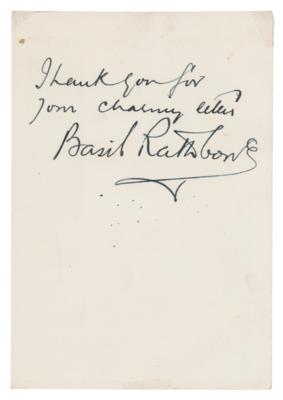 Thank you for
your charming letter
Basil Rathbone